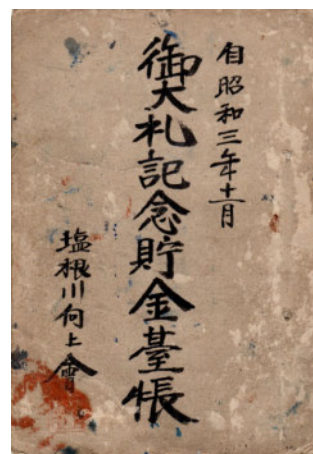 自昭和三年十一月
御大札記念貯金臺帳
塩根川向上會